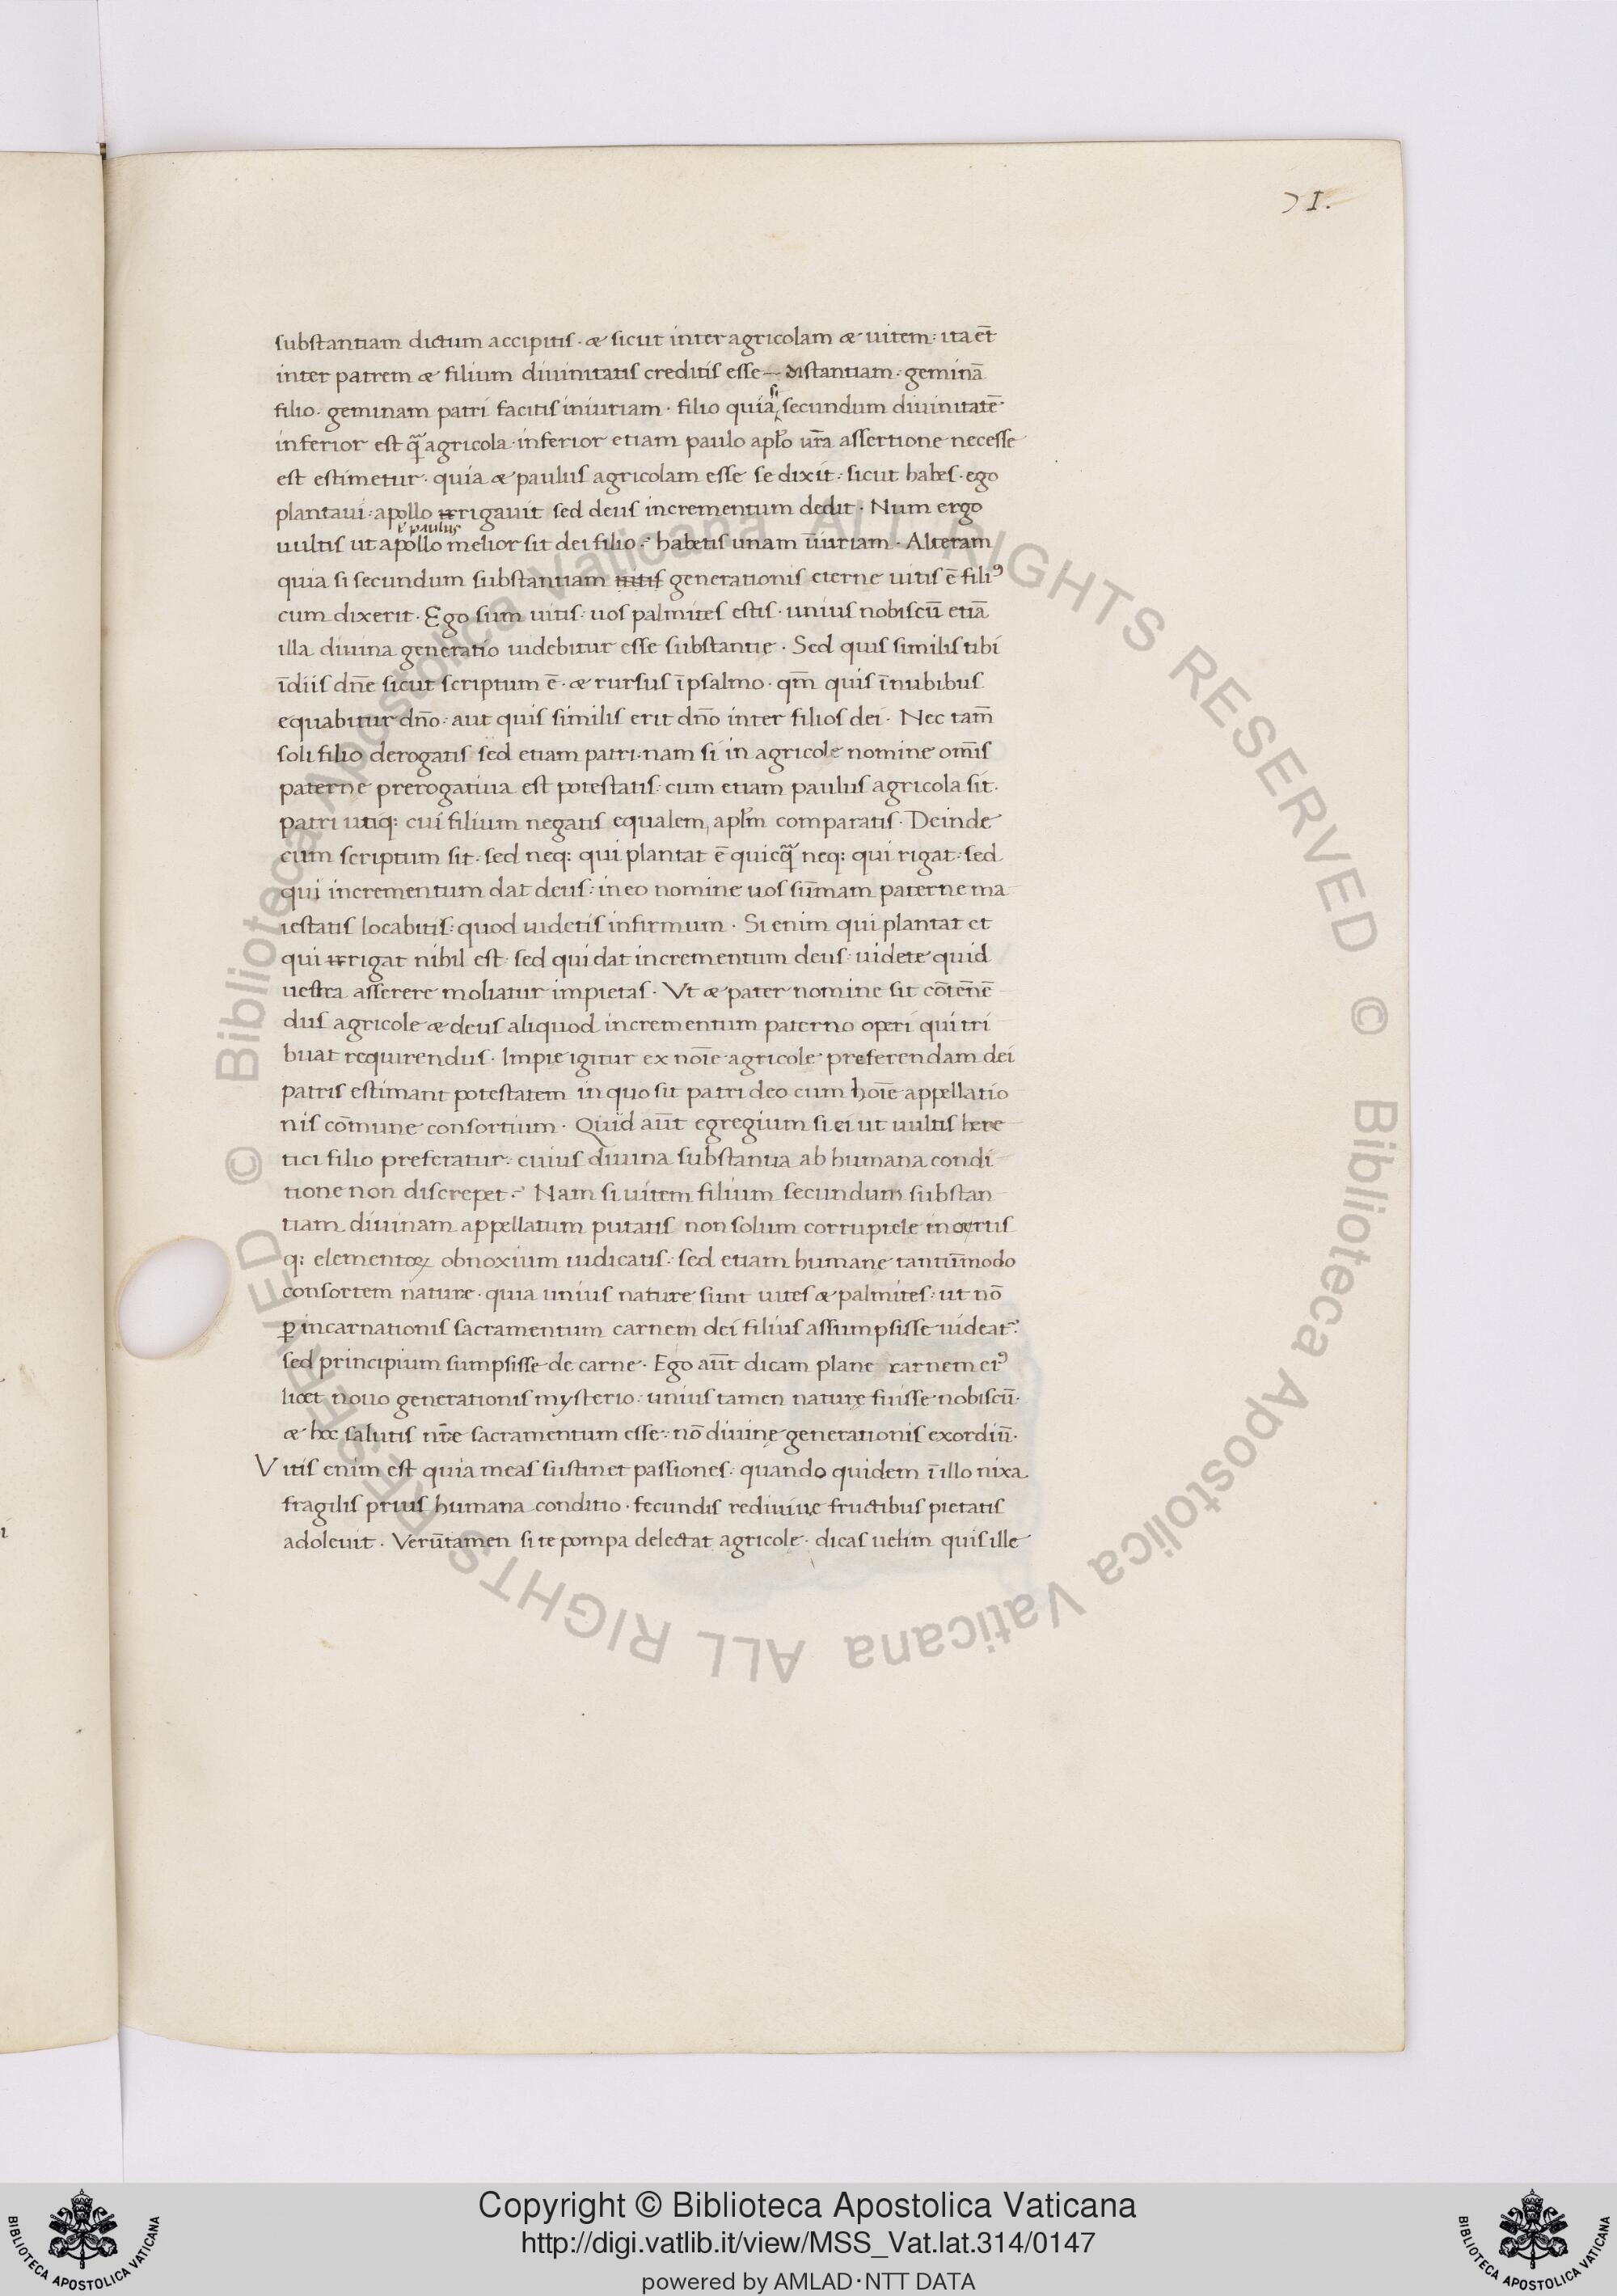 71.
substantiam dictum accipitis · & sicut inter agricolam & uitem : ita et̄
inter patrem & filium diuinitatis creditis esse — distantiam : geminā
filio · geminam patri facitis iniuriam · filio quia si secundum diuinitatē
inferior est q̃ agricola · inferior etiam paulo apl̄o ur̄a assertione necesse
est estimetur · quia & paulus agricolam esse se dixit : sicut habes · ego
plantaui : apollo irrigauit sed deus incrementum dedit · Num ergo
uultis ut apollo ł paulus melior sit dei filio ? habetis unam īiuriam · Alteram
quia si secundum substantiam uitis generationis eterne uitis ē filiꝰ
cum dixerit · Ego sum uitis : uos palmites estis · unius nobiscū etiā
illa diuina generatio uidebitur esse substantie · Sed quis similis tibi
ī diis dn̄e sicut scriptum ē · & rursus ī psalmo · qm̄ quis ī nubibus
equabitur dn̄o : aut quis similis erit dn̄o inter filios dei · Nec tam̄
soli filio derogatis sed etiam patri · nam si in agricole nomine om̄is
paterne prerogatiua est potestatis : cum etiam paulus agricola sit ·
patri utiq: cui filium negatis equalem, apl̄m comparatis · Deinde
cum scriptum sit · sed neq: qui plantat ē quicq̃ neq: qui rigat : sed
qui incrementum dat deus : in eo nomine uos sūmam paterne ma
iestatis locabitis : quod uidetis infirmum · Si enim qui plantat et
qui irrigat nihil est : sed qui dat incrementum deus : uidete quid
uestra asserere moliatur impietas · Vt & pater nomine sit cōtēnē
dus agricole & deus aliquod incrementum paterno operi qui tri
buat requirendus · Impie igitur ex noīe agricole preferendam dei
patris estimant potestatem in quo sit patri deo cum hoīe appellatio
nis cōmune consortium · Quid aūt egregium si ei ut uultis here
tici filio preferatur : cuius diuina substantia ab humana condi
tione non discrepet ? Nam si uitem filium secundum substan
tiam diuinam appellatum putatis non solum corruptele incertis
q: elementoꝝ obnoxium iudicatis : sed etiam humane tantūmodo
consortem nature · quia unius nature sunt uites & palmites : ut nō
ꝑ incarnationis sacramentum carnem dei filius assumpsisse uideat᷑ :
sed principium sumpsisse de carne · Ego aūt dicam plane carnem eiꝰ
licet nouo generationis mysterio : unius tamen naturę fuisse nobiscū ·
& hoc salutis nr̄e sacramentum esse : nō diuinę generationis exordiū ·
Vitis enim est quia meas sustinet passiones : quando quidem ī illo nixa
fragilis prius humana conditio · fecundis rediuiue fructibus pietatis
adoleuit · Verūtamen si te pompa delectat agricole · dicas uelim quis ille
© Biblioteca Apostolica Vaticana ALL RIGHTS RESERVED © Biblioteca Apostolica Vaticana ALL RIGHTS RESERVED
Copyright © Biblioteca Apostolica Vaticana
http://digi.vatlib.it/view/MSS_Vat.lat.314/0147
powered by AMLAD·NTT DATA
BIBLIOTECA APOSTOLICA VATICANA
BIBLIOTECA APOSTOLICA VATICANA